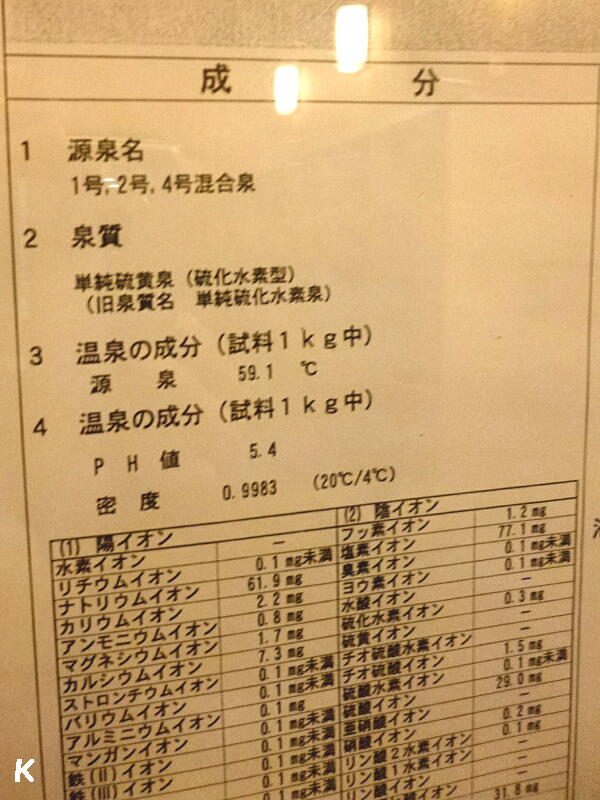 成 分
1 源泉名
1号, 2号, 4号混合泉
2 泉質
単純硫黄泉（硫化水素型）
（旧泉質名 単純硫化水素泉）
3 温泉の成分（試料1kg中）
源 泉 59.1 ℃
4 温泉の成分（試料1kg中）
PH 値 5.4
密 度 0.9983 (20℃/4℃)
(1) 陽イオン
水素イオン －
リチウムイオン 0.1 mg未満
ナトリウムイオン 61.9 mg
カリウムイオン 2.2 mg
アンモニウムイオン 0.8 mg
マグネシウムイオン 1.7 mg
カルシウムイオン 7.3 mg
ストロンチウムイオン 0.1 mg未満
バリウムイオン 0.1 mg未満
アルミニウムイオン 0.1 mg
マンガンイオン 0.1 mg未満
鉄(II)イオン 0.1 mg未満
鉄(III)イオン 0.1 mg未満
(2) 陰イオン
フッ素イオン 1.2 mg
塩素イオン 77.1 mg
臭素イオン 0.1 mg未満
ヨウ素イオン 0.1 mg未満
水酸イオン －
硫化水素イオン 0.3 mg
硫黄イオン －
チオ硫酸水素イオン －
チオ硫酸イオン 1.5 mg
硫酸水素イオン 0.1 mg未満
硫酸イオン 29.0 mg
亜硝酸イオン －
硝酸イオン 0.2 mg
リン酸2水素イオン 0.1 mg
リン酸1水素イオン －
リン酸イオン －
31.8 mg
K